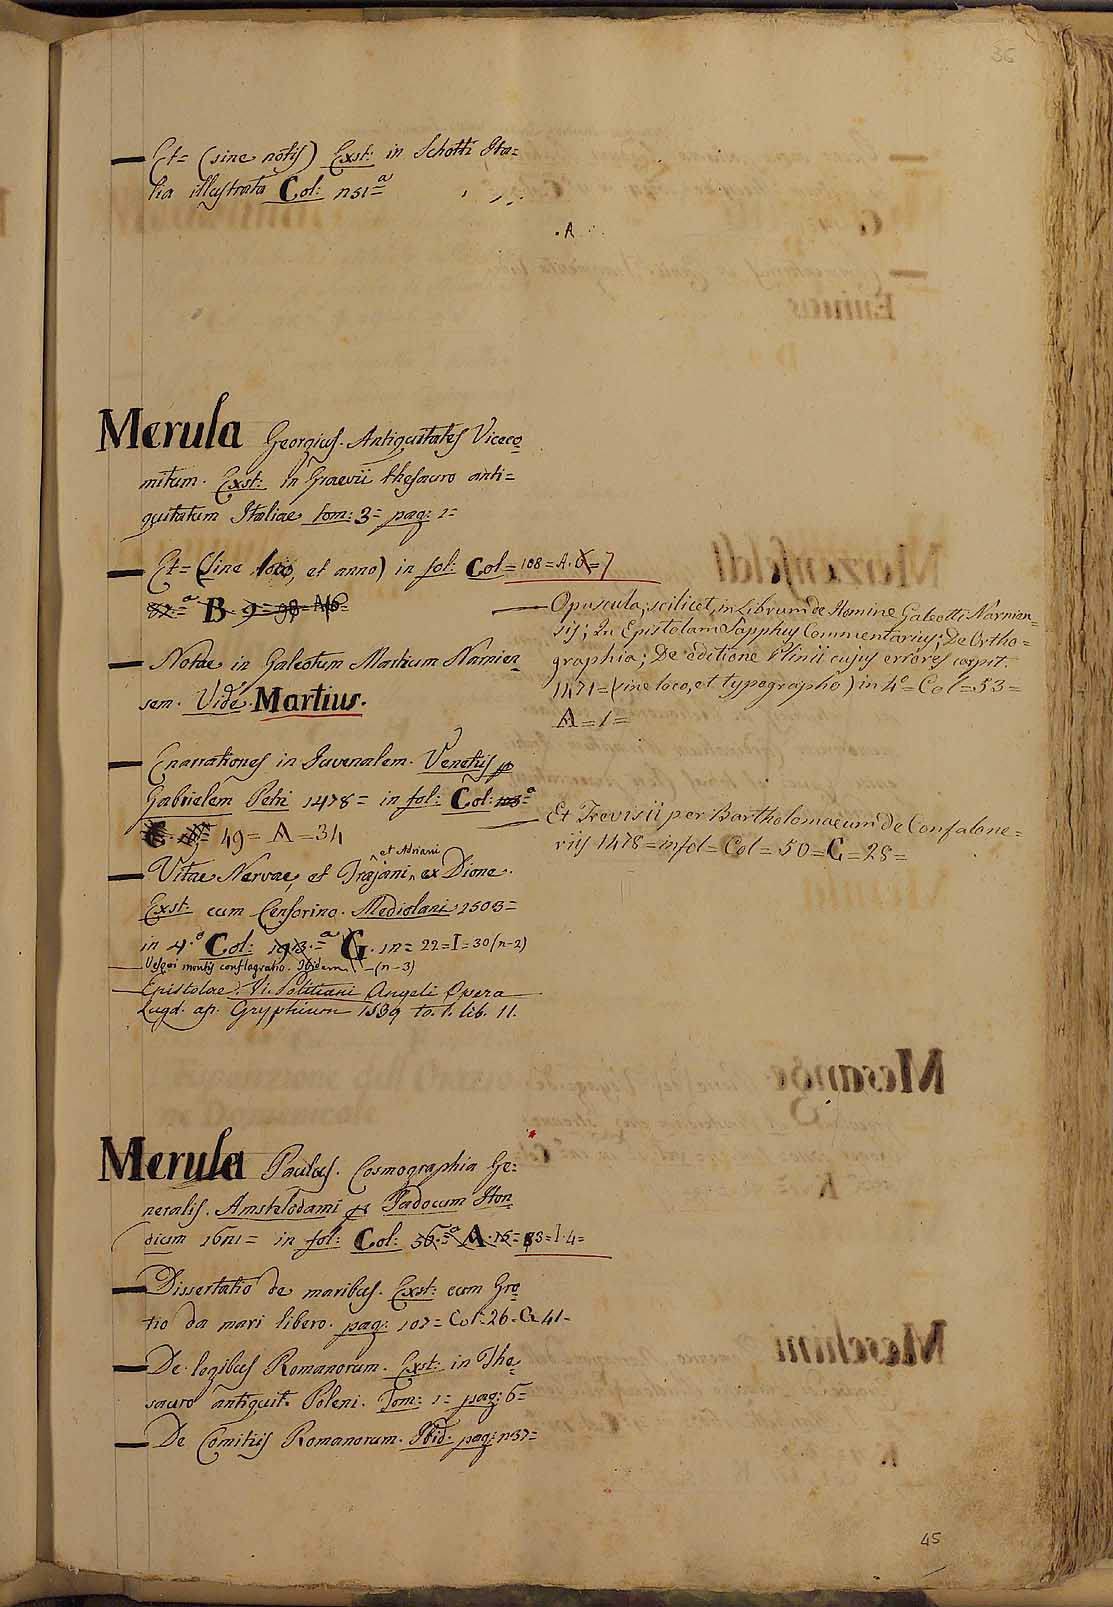 36
— Et= (sine notis) Exst: in Schotti Ita=
lia illustrata Col: 151=a
. A
Merula Georgius. Antiquitates Viceco=
mitum. Exst: in Graevii thesauro anti=
quitatum Italiae tom: 3= pag: 1=
— Et= (Sine loco, et anno) in fol: Col= 108=A. 6=7
82=a B 9= 98= A6=
— Notae in Galeotum Martium Narnien=
sem. Vide. Martius.
— Enarrationes in Juvenalem. Venetiis p
Gabrielem Petri 1478= in fol: Col: 103=a
49= A =34
— Vitae Nervae, et Trajani, et Adriani ex Dione.
Exst: cum Censorino. Mediolani 1503=
in 4.o Col: 193.=a G. 12= 22=I=30(n-2)
— Vesevi montis conflagratio. Ibidem — (n-3)
— Epistolae. Vi. Politiani Angeli Opera
Lugd. ap. Gryphium 1539 to. 1. lib. 11.
— Opuscula, scilicet, in Librum de Homine Galeotti Narnien=
sis; In Epistolam Sapphus Commentarius; De Ortho=
graphia; De editione Plinii cujus errores corrpit.
1471=(sine loco, et typographo) in 4o= Col=53=
A=1=
— Et Trevisii per Bartholomaeum de Confalone=
riis 1478= in fol= Col= 50=C=28=
Merula Paulus. Cosmographia Ge=
neralis. Amstelodami p Jadocum Hon
dium 1621= in fol: Col: 36.=a A.15= 83=I.4=
— Dissertatio de maribus. Exst: cum Gro
tio da mari libero. pag: 107= Col=26=G=41=
— De legibus Romanorum. Exst: in The
sauro antiquit. Poleni. Tom: 1= pag: 6=
— De Comitiis Romanorum. Ibid. pag: 237=
45